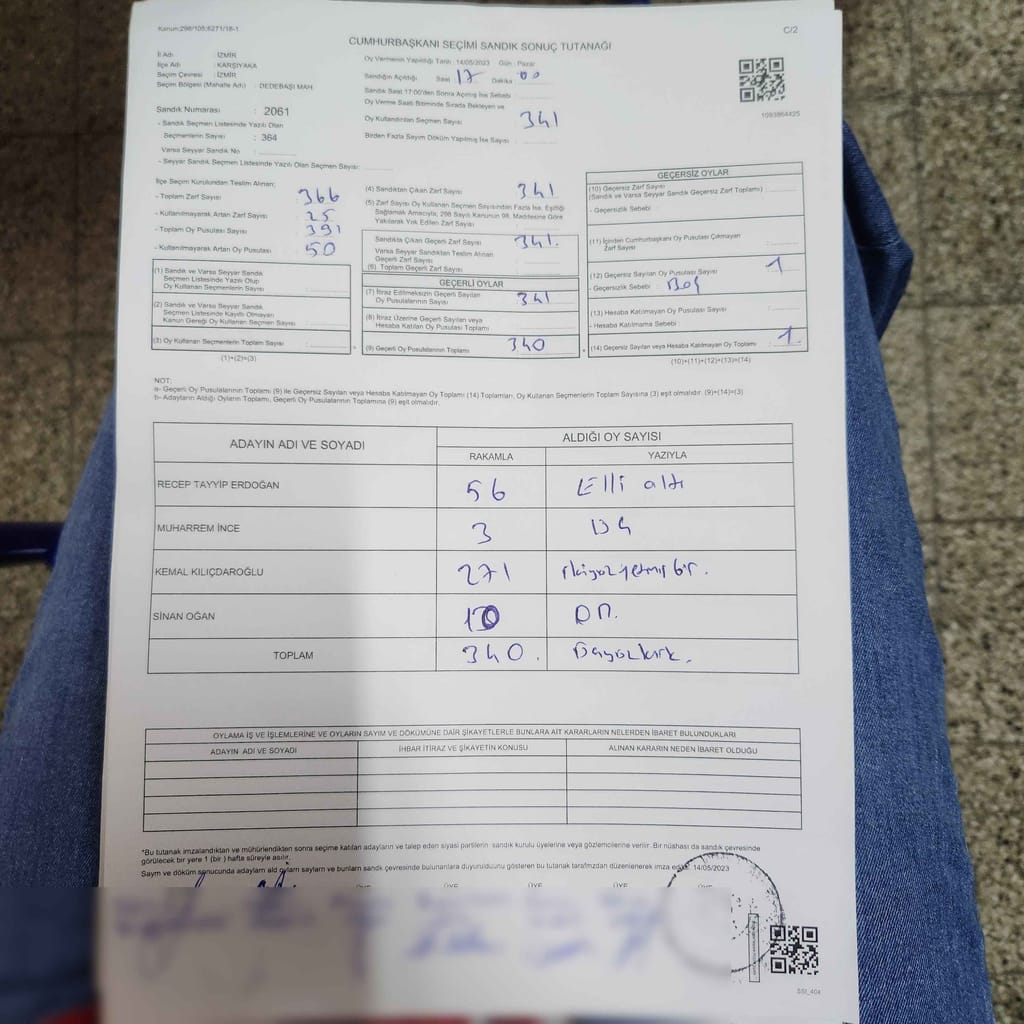 Kanun:298/105;6271/18-1
C/2
CUMHURBAŞKANI SEÇİMİ SANDIK SONUÇ TUTANAĞI
İl Adı : İZMİR
İlçe Adı : KARŞIYAKA
Seçim Çevresi : İZMİR
Seçim Bölgesi (Mahalle Adı) : DEDEBAŞI MAH.
Sandık Numarası : 2061
- Sandık Seçmen Listesinde Yazılı Olan
Seçmenlerin Sayısı : 364
Varsa Seyyar Sandık No :
- Seyyar Sandık Seçmen Listesinde Yazılı Olan Seçmen Sayısı:
Oy Vermenin Yapıldığı Tarih : 14/05/2023 Gün : Pazar
Sandığın Açıldığı Saat : 17 Dakika : 00
Sandık Saat 17:00'den Sonra Açılmış İse Sebebi :
Oy Verme Saati Bitiminde Sırada Bekleyen ve
Oy Kullandırılan Seçmen Sayısı : 341
Birden Fazla Sayım Döküm Yapılmış İse Sayısı :
1093864425
İlçe Seçim Kurulundan Teslim Alınan;
- Toplam Zarf Sayısı : 366
- Kullanılmayarak Artan Zarf Sayısı : 25
- Toplam Oy Pusulası Sayısı : 391
- Kullanılmayarak Artan Oy Pusulası : 50
(1) Sandık ve Varsa Seyyar Sandık
Seçmen Listesinde Yazılı Olup
Oy Kullanan Seçmenlerin Sayısı :
(2) Sandık ve Varsa Seyyar Sandık
Seçmen Listesinde Kayıtlı Olmayan
Kanun Gereği Oy Kullanan Seçmen Sayısı :
(3) Oy Kullanan Seçmenlerin Toplam Sayısı :
(1)+(2)=(3)
=
(4) Sandıktan Çıkan Zarf Sayısı : 341
(5) Zarf Sayısı Oy Kullanan Seçmen Sayısından Fazla İse, Eşitliği
Sağlamak Amacıyla; 298 Sayılı Kanunun 98. Maddesine Göre
Yakılarak Yok Edilen Zarf Sayısı :
Sandıkta Çıkan Geçerli Zarf Sayısı : 341.
Varsa Seyyar Sandıktan Teslim Alınan
Geçerli Zarf Sayısı :
(6) Toplam Geçerli Zarf Sayısı :
GEÇERLİ OYLAR
(7) İtiraz Edilmeksizin Geçerli Sayılan
Oy Pusulalarının Sayısı : 341
(8) İtiraz Üzerine Geçerli Sayılan veya
Hesaba Katılan Oy Pusulası Toplamı :
(9) Geçerli Oy Pusulalarının Toplamı : 340
+
GEÇERSİZ OYLAR
(10) Geçersiz Zarf Sayısı
(Sandık ve Varsa Seyyar Sandık Geçersiz Zarf Toplamı) :
- Geçersizlik Sebebi :
(11) İçinden Cumhurbaşkanı Oy Pusulası Çıkmayan
Zarf Sayısı :
(12) Geçersiz Sayılan Oy Pusulası Sayısı : 1
- Geçersizlik Sebebi : Boş
(13) Hesaba Katılmayan Oy Pusulası Sayısı :
- Hesaba Katılmama Sebebi :
(14) Geçersiz Sayılan veya Hesaba Katılmayan Oy Toplamı : 1.
(10)+(11)+(12)+(13)=(14)
NOT:
a- Geçerli Oy Pusulalarının Toplamı (9) ile Geçersiz Sayılan veya Hesaba Katılmayan Oy Toplamı (14) Toplamları, Oy Kullanan Seçmenlerin Toplam Sayısına (3) eşit olmalıdır. (9)+(14)=(3)
b- Adayların Aldığı Oyların Toplamı, Geçerli Oy Pusulalarının Toplamına (9) eşit olmalıdır.
ADAYIN ADI VE SOYADI ALDIĞI OY SAYISI
RAKAMLA YAZIYLA
RECEP TAYYİP ERDOĞAN 56 Elli altı
MUHARREM İNCE 3 Üç
KEMAL KILIÇDAROĞLU 271 ikiyüzyetmiş bir.
SİNAN OĞAN 10 On.
TOPLAM 340. Üçyüzkırk.
OYLAMA İŞ VE İŞLEMLERİNE VE OYLARIN SAYIM VE DÖKÜMÜNE DAİR ŞİKAYETLERLE BUNLARA AİT KARARLARIN NELERDEN İBARET BULUNDUKLARI
ADAYIN ADI VE SOYADI İHBAR İTİRAZ VE ŞİKAYETİN KONUSU ALINAN KARARIN NEDEN İBARET OLDUĞU
*Bu tutanak imzalandıktan ve mühürlendikten sonra seçime katılan adayların ve talep eden siyasi partilerin sandık kurulu üyelerine veya gözlemcilerine verilir. Bir nüshası da sandık çevresinde
görülecek bir yere 1 (bir) hafta süreyle asılır.
Sayım ve döküm sonucunda adayların aldığı oyların sayıları ve bunların sandık çevresinde bulunanlara duyurulduğunu gösteren bu tutanak tarafımızdan düzenlenerek imza edildi. 14/05/2023
ÜYE ÜYE ÜYE ÜYE ÜYE
SSt_404